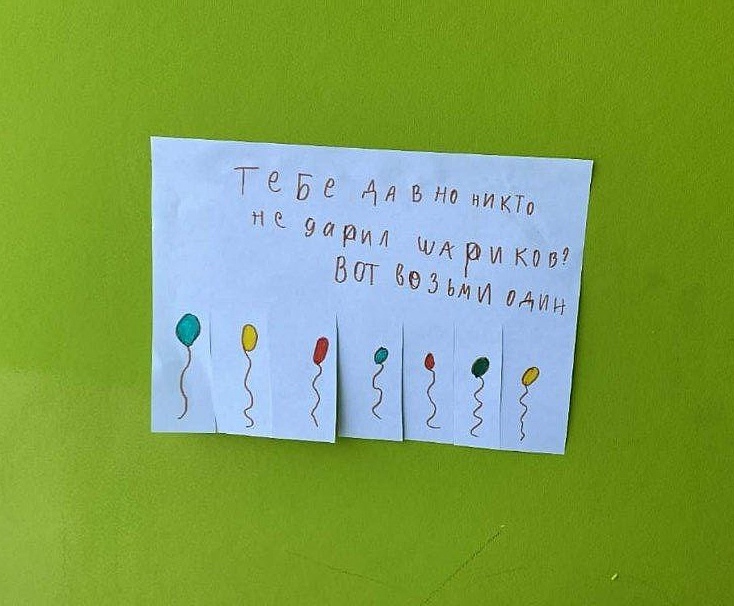 Тебе давно никто
не дарил шариков?
Вот возьми один